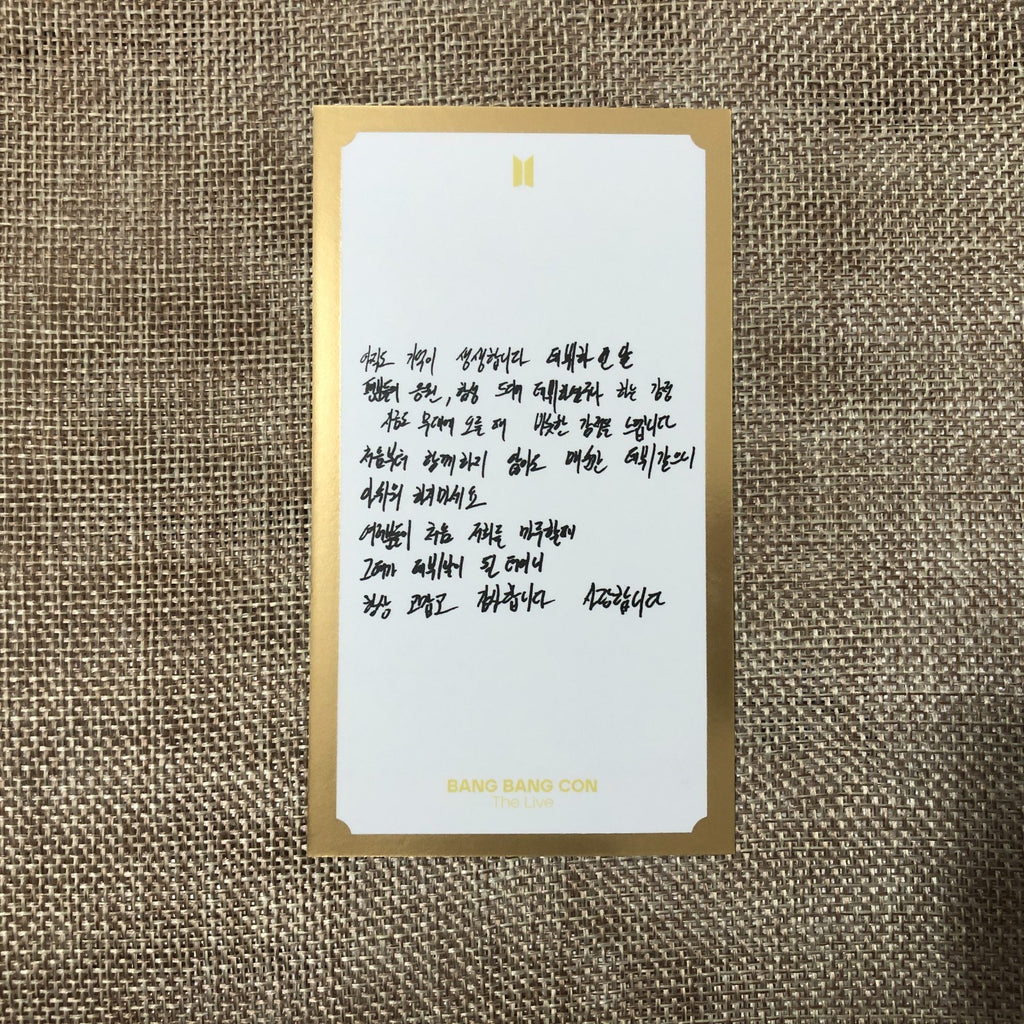 아직도 기억이 생생합니다 데뷔하던 날
팬분들의 응원, 함성 드디어 데뷔하는구나 하는 감동
지금도 무대에 오를 때 비슷한 감정을 느낍니다
처음부터 함께하지 않아도 매순간 데뷔같으니
아쉬워 하지마세요
여러분들이 처음 저희를 마주할때
그때가 데뷔날이 될 테이니
항상 고맙고 감사합니다 사랑합니다
BANG BANG CON
The Live